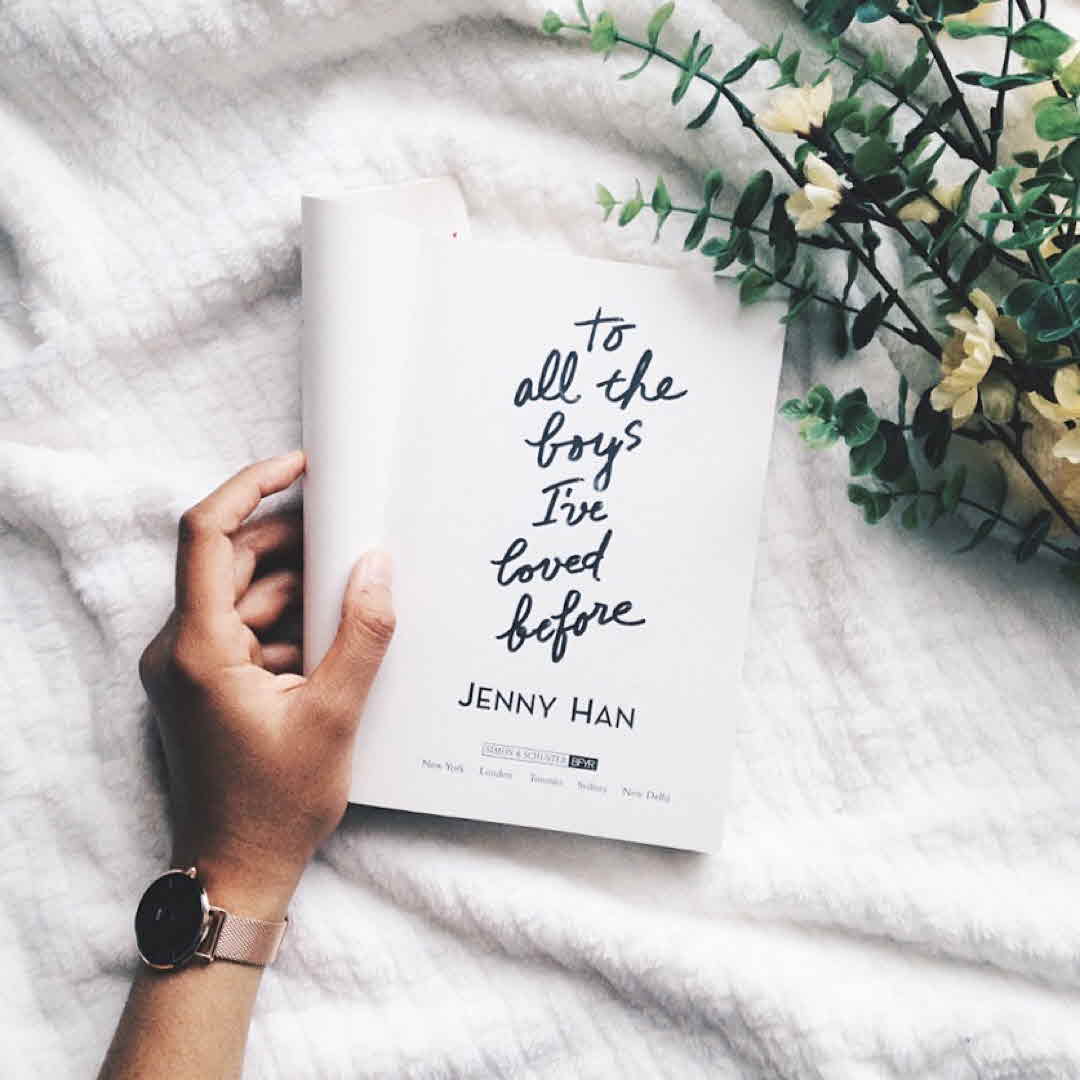 to
all the
boys
I've
loved
before
JENNY HAN
SIMON & SCHUSTER BFYR
New York London Toronto Sydney New Delhi